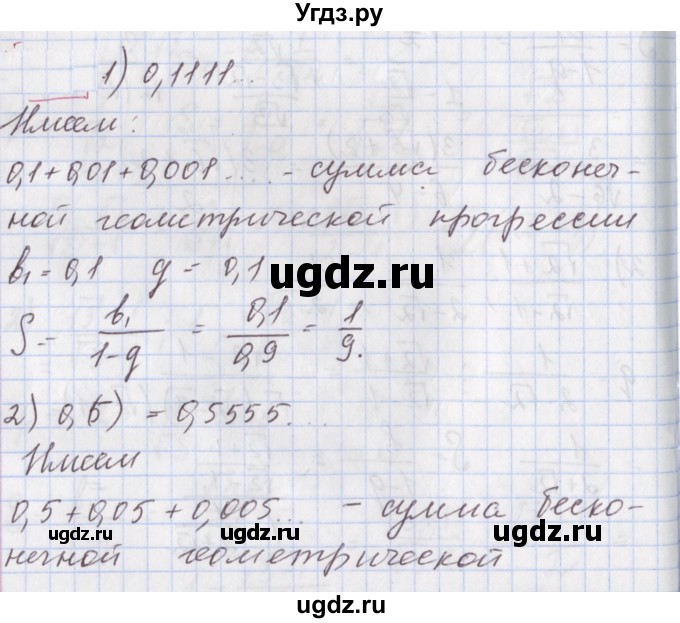 Угдз.ру
1) 0,1111...
Имеем:
0,1+0,01+0,001.... - сумма бесконеч-
ной геометрической прогрессии
b₁=0,1 q = 0,1
ugdz.ru
S = b₁/(1-q) = 0,1/0,9 = 1/9.
2) 0,(5) = 0,5555....
Имеем
0,5+0,05+0,005... - сумма беско-
ugdz.ru
нечной геометрической
ugdz.ru